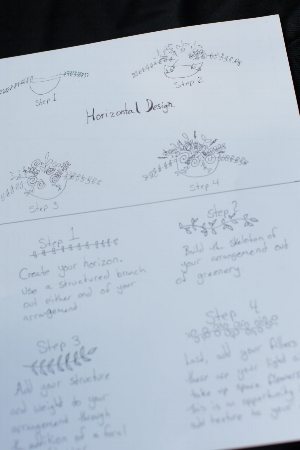 Step 1
Step 2
Horizontal Design
Step 3
Step 4
Step 1
Create your horizon.
Use a structured branch
out either end of your
arrangement.
Step 2
Build the skeleton of
your arrangement out
of greenery
Step 3
Add your structure
and weight to your
arrangement through
the addition of a focal
Step 4
Last, add your fillers
these are your light
take up space flowers
this is an opportunity
add texture to your